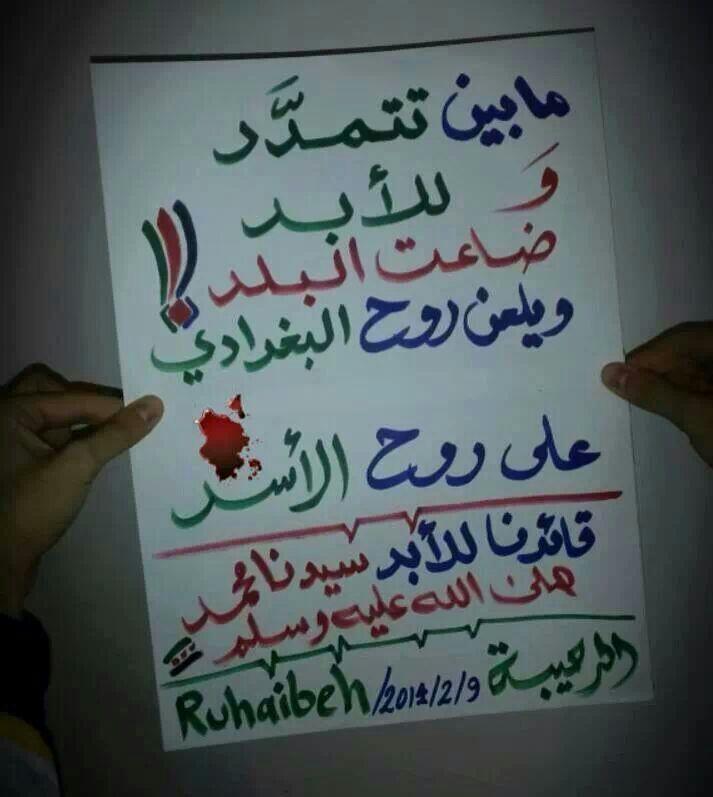 ما بين تتمدَّد
وَ للأبد
ضاعت البلد !!!
ويلعن روح البغدادي
على روح الأسد
قائدنا للأبد سيدنا محمد
صلى الله عليه وسلم
الرحيبة 2014/2/9/ Ruhaibeh